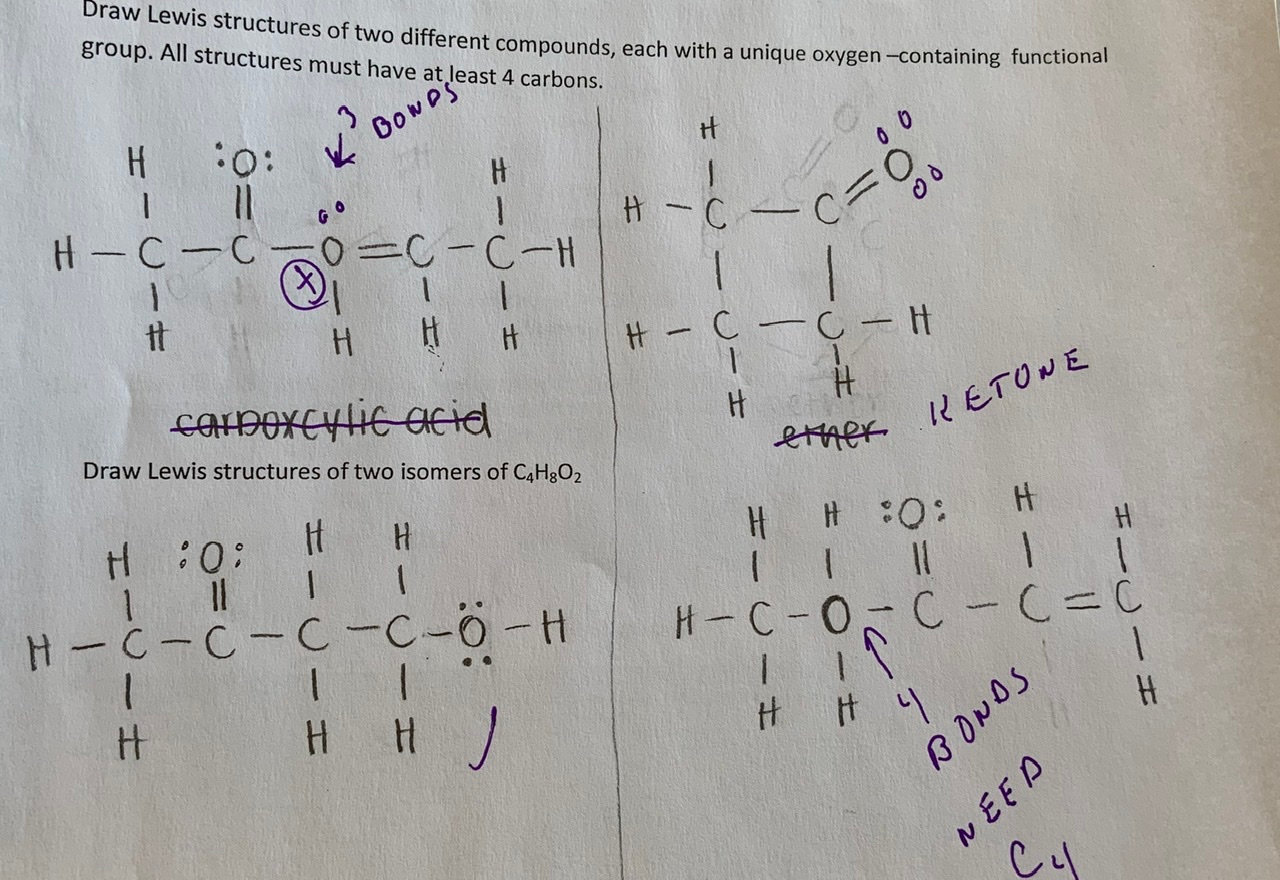 Draw Lewis structures of two different compounds, each with a unique oxygen –containing functional
group. All structures must have at least 4 carbons.
3 BONDS
H :O: H
H – C – C – O = C – C – H
X
H H H H
carboxcylic acid
H
H – C – C = O
H – C – C – H
H H
ether KETONE
Draw Lewis structures of two isomers of C₄H₈O₂
H :O: H H
H – C – C – C – C – Ö – H
H H H
H H :O: H H
H – C – O – C – C = C
H H H
4
BONDS
NEED
C4